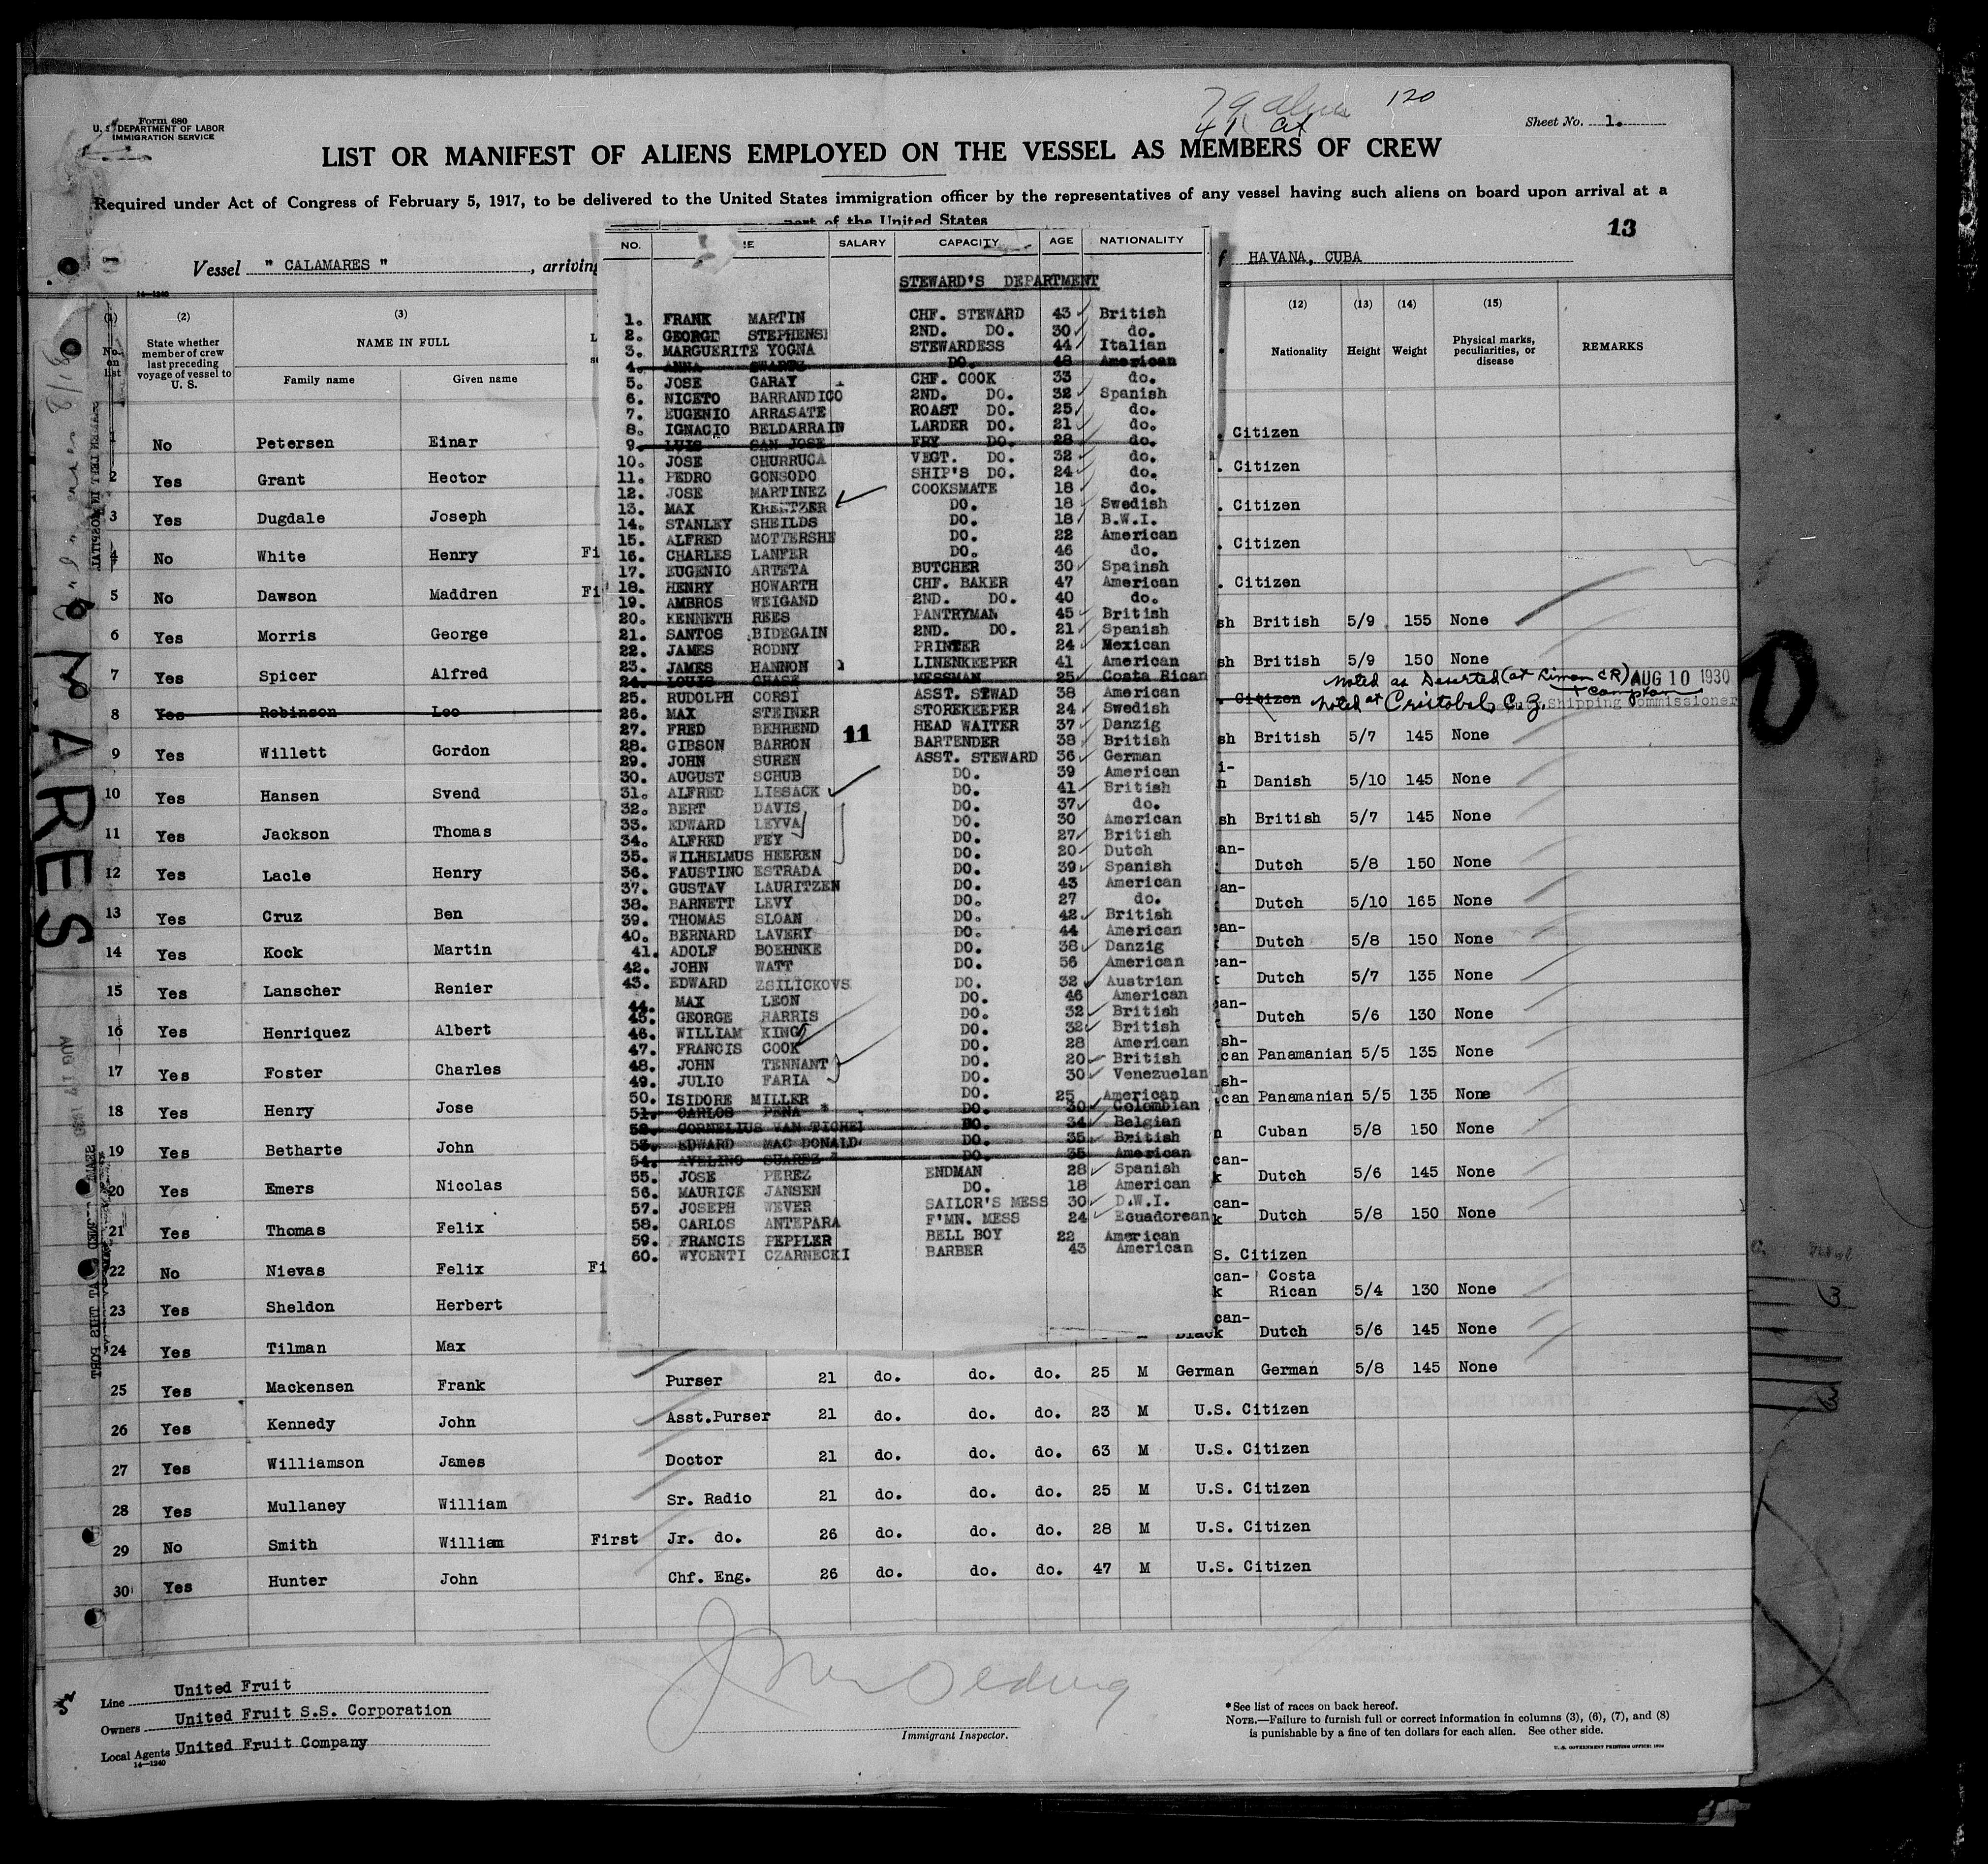 Form 680
U. S. DEPARTMENT OF LABOR
IMMIGRATION SERVICE
79 aliens 120
41 cit
Sheet No. 1.
LIST OR MANIFEST OF ALIENS EMPLOYED ON THE VESSEL AS MEMBERS OF CREW
Required under Act of Congress of February 5, 1917, to be delivered to the United States immigration officer by the representatives of any vessel having such aliens on board upon arrival at a
port of the United States
13
Vessel " CALAMARES " , arriving
HAVANA, CUBA
14-1240
(1) (2) (3) (12) (13) (14) (15)
No. on list
State whether member of crew last preceding voyage of vessel to U. S.
NAME IN FULL
Family name Given name
Nationality Height Weight Physical marks, peculiarities, or disease REMARKS
1 No Petersen Einar . Citizen
2 Yes Grant Hector . Citizen
3 Yes Dugdale Joseph . Citizen
4 No White Henry Fi . Citizen
5 No Dawson Maddren Fi . Citizen
6 Yes Morris George sh British 5/9 155 None
7 Yes Spicer Alfred sh British 5/9 150 None
8 Yes Robinson Leo . Citizen Noted as Deserted (at Limon CR) AUG 10 1930
Noted at Cristobal, C.Z. Shipping Commissioner
9 Yes Willett Gordon sh British 5/7 145 None
10 Yes Hansen Svend Danish 5/10 145 None
11 Yes Jackson Thomas sh British 5/7 145 None
12 Yes Lacle Henry an- Dutch 5/8 150 None
13 Yes Cruz Ben an- Dutch 5/10 165 None
14 Yes Kock Martin can- Dutch 5/8 150 None
15 Yes Lanscher Renier can- Dutch 5/7 135 None
16 Yes Henriquez Albert can- Dutch 5/6 130 None
17 Yes Foster Charles sh- can Panamanian 5/5 135 None
18 Yes Henry Jose sh- can Panamanian 5/5 135 None
19 Yes Betharte John n Cuban 5/8 150 None
20 Yes Emers Nicolas can- k Dutch 5/6 145 None
21 Yes Thomas Felix can- k Dutch 5/8 150 None
22 No Nievas Felix Fi S. Citizen
23 Yes Sheldon Herbert can- k Costa Rican 5/4 130 None
24 Yes Tilman Max can- Black Dutch 5/6 145 None
25 Yes Mackensen Frank Purser 21 do. do. do. 25 M German German 5/8 145 None
26 Yes Kennedy John Asst.Purser 21 do. do. do. 23 M U.S. Citizen
27 Yes Williamson James Doctor 21 do. do. do. 63 M U.S. Citizen
28 Yes Mullaney William Sr. Radio 21 do. do. do. 25 M U.S. Citizen
29 No Smith William First Jr. do. 26 do. do. do. 28 M U.S. Citizen
30 Yes Hunter John Chf. Eng. 26 do. do. do. 47 M U.S. Citizen
NO. SALARY CAPACITY AGE NATIONALITY
STEWARD'S DEPARTMENT
1. FRANK MARTIN CHF. STEWARD 43 British
2. GEORGE STEPHENS 2ND. DO. 30 do.
3. MARGUERITE YOGNA STEWARDESS 44 Italian
4. ANNA SWARTZ DO. 48 American
5. JOSE GARAY CHF. COOK 33 do.
6. NICETO BARRANDICO 2ND. DO. 32 Spanish
7. EUGENIO ARRASATE ROAST DO. 25 do.
8. IGNACIO BELDARRAIN LARDER DO. 21 do.
9. LUIS SAN JOSE FRY DO. 28 do.
10. JOSE CHURRUCA VEGT. DO. 32 do.
11. PEDRO GONSODO SHIP'S DO. 24 do.
12. JOSE MARTINEZ COOKSMATE 18 do.
13. MAX KRETZER DO. 18 Swedish
14. STANLEY SHEILDS DO. 18 B.W.I.
15. ALFRED MOTTERSHE DO. 22 American
16. CHARLES LANFER DO. 46 do.
17. EUGENIO ARTETA BUTCHER 30 Spainsh
18. HENRY HOWARTH CHF. BAKER 47 American
19. AMBROS WEIGAND 2ND. DO. 40 do.
20. KENNETH REES PANTRYMAN 45 British
21. SANTOS BIDEGAIN 2ND. DO. 21 Spanish
22. JAMES RODNY PRINTER 24 Mexican
23. JAMES HANNON LINENKEEPER 41 American
24. LOUIS CHASE MESSMAN 25 Costa Rican
25. RUDOLPH CORSI ASST. STEWAD 38 American
26. MAX STEINER STOREKEEPER 24 Swedish
27. FRED BEHREND HEAD WAITER 37 Danzig
11
28. GIBSON BARRON BARTENDER 38 British
29. JOHN SUREN ASST. STEWARD 36 German
30. AUGUST SCHUB DO. 39 American
31. ALFRED LISSACK DO. 41 British
32. BERT DAVIS DO. 37 do.
33. EDWARD LEYVA DO. 30 American
34. ALFRED FEY DO. 27 British
35. WILHELMUS HEEREN DO. 20 Dutch
36. FAUSTINO ESTRADA DO. 39 Spanish
37. GUSTAV LAURITZEN DO. 43 American
38. BARNETT LEVY DO. 27 do.
39. THOMAS SLOAN DO. 42 British
40. BERNARD LAVERY DO. 44 American
41. ADOLF BOEHNKE DO. 38 Danzig
42. JOHN WATT DO. 56 American
43. EDWARD ZSILICKOVS DO. 32 Austrian
44. MAX LEON DO. 46 American
45. GEORGE HARRIS DO. 32 British
46. WILLIAM KING DO. 32 British
47. FRANCIS COOK DO. 28 American
48. JOHN TENNANT DO. 20 British
49. JULIO FARIA DO. 30 Venezuelan
50. ISIDORE MILLER DO. 25 American
51. CARLOS PENA DO. 30 Colombian
52. CORNELIUS VAN TICHEL DO. 34 Belgian
53. EDWARD MAC DONALD DO. 35 British
54. AVELINO SUAREZ DO. 35 American
55. JOSE PEREZ ENDMAN 28 Spanish
56. MAURICE JANSEN DO. 18 American
57. JOSEPH WEVER SAILOR'S MESS 30 D.W.I.
58. CARLOS ANTEPARA F'MN. MESS 24 Ecuadorean
59. FRANCIS PEPPLER BELL BOY 22 American
60. WYCENTI CZARNECKI BARBER 43 American
Line United Fruit
Owners United Fruit S.S. Corporation
Local Agents United Fruit Company
14-1240
Immigrant Inspector.
*See list of races on back hereof.
NOTE.—Failure to furnish full or correct information in columns (3), (6), (7), and (8)
is punishable by a fine of ten dollars for each alien. See other side.
U. S. GOVERNMENT PRINTING OFFICE
ARES
AUG 17 1930